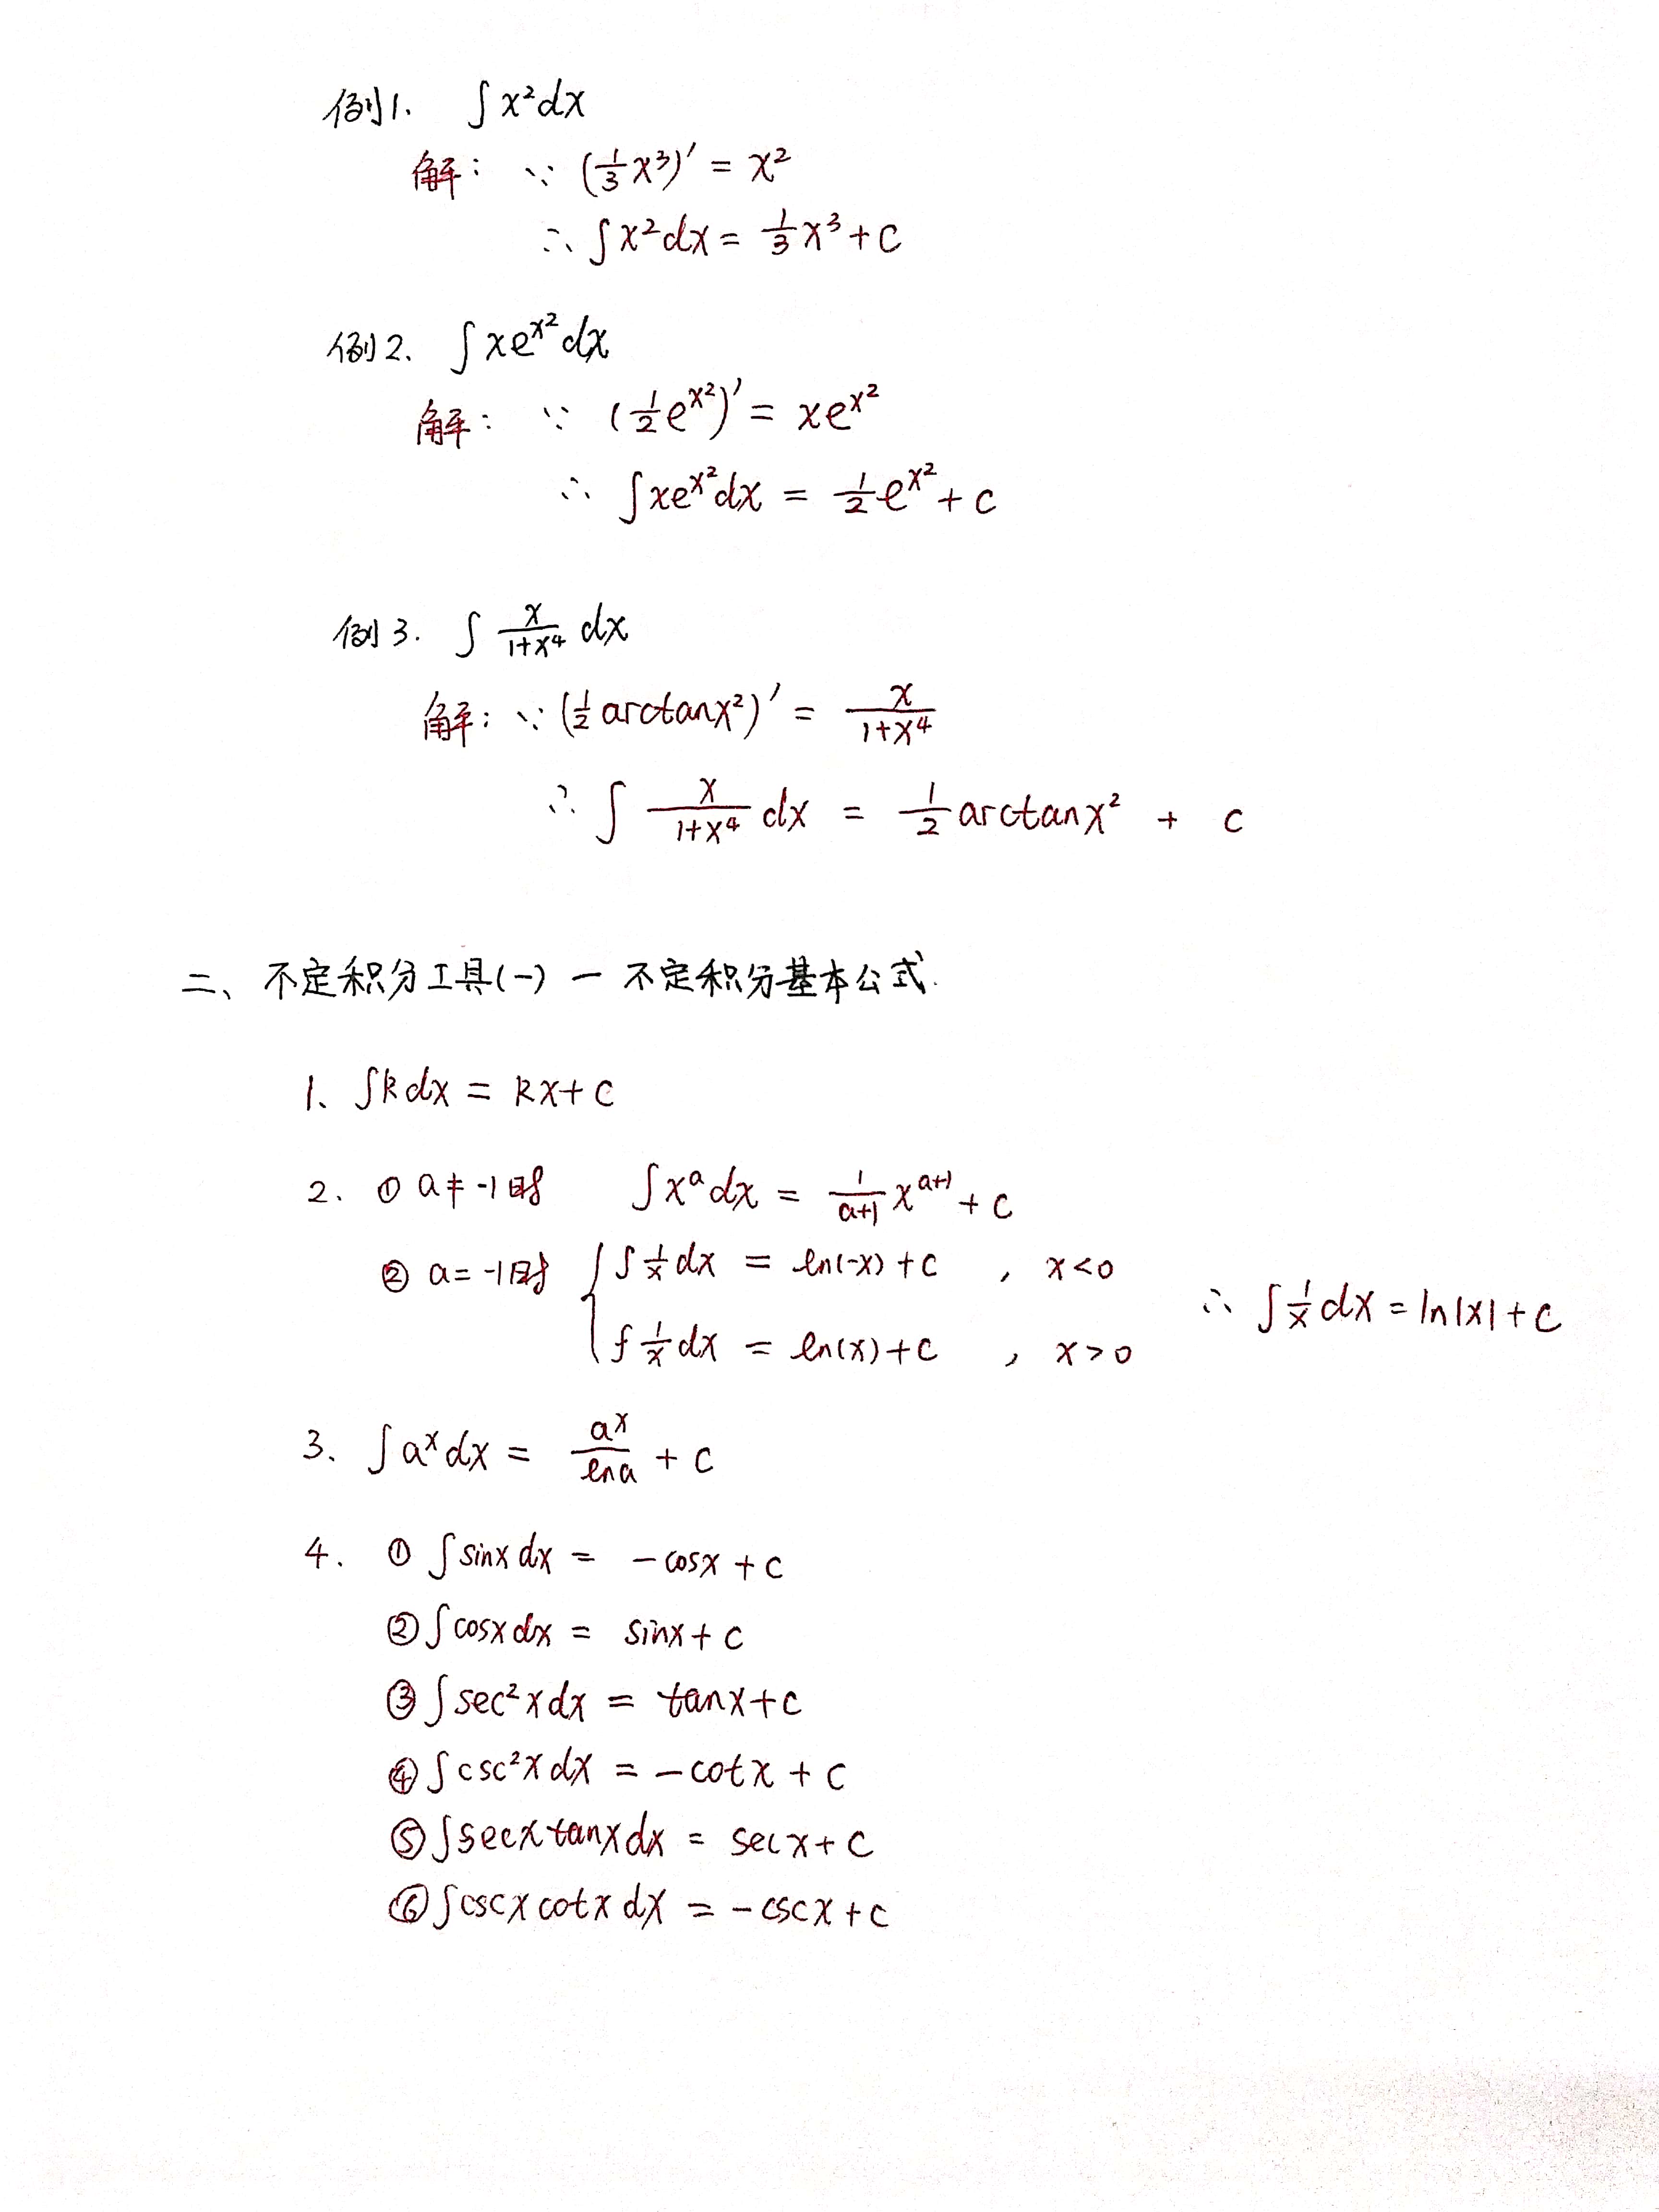 例1. ∫x²dx
解: ∵ (1/3 x³)′ = x²
∴ ∫x²dx = 1/3 x³ + C
例2. ∫xe^{x²}dx
解: ∵ (1/2 e^{x²})′ = xe^{x²}
∴ ∫xe^{x²}dx = 1/2 e^{x²} + C
例3. ∫ x/(1+x⁴) dx
解: ∵ (1/2 arctanx²)′ = x/(1+x⁴)
∴ ∫ x/(1+x⁴) dx = 1/2 arctanx² + C
二、不定积分工具(一) — 不定积分基本公式.
1、∫kdx = kx+C
2. ① a≠-1时 ∫x^a dx = 1/(a+1) x^{a+1} + C
② a=-1时 { ∫1/x dx = ln(-x)+C , x<0
∫1/x dx = ln(x)+C , x>0 ∴ ∫1/x dx = ln|x|+C
3、∫a^x dx = a^x/lna + C
4. ① ∫sinxdx = -cosx+C
② ∫cosxdx = sinx+C
③ ∫sec²xdx = tanx+C
④ ∫csc²xdx = -cotx+C
⑤ ∫secxtanxdx = secx+C
⑥ ∫cscxcotxdx = -cscx+C